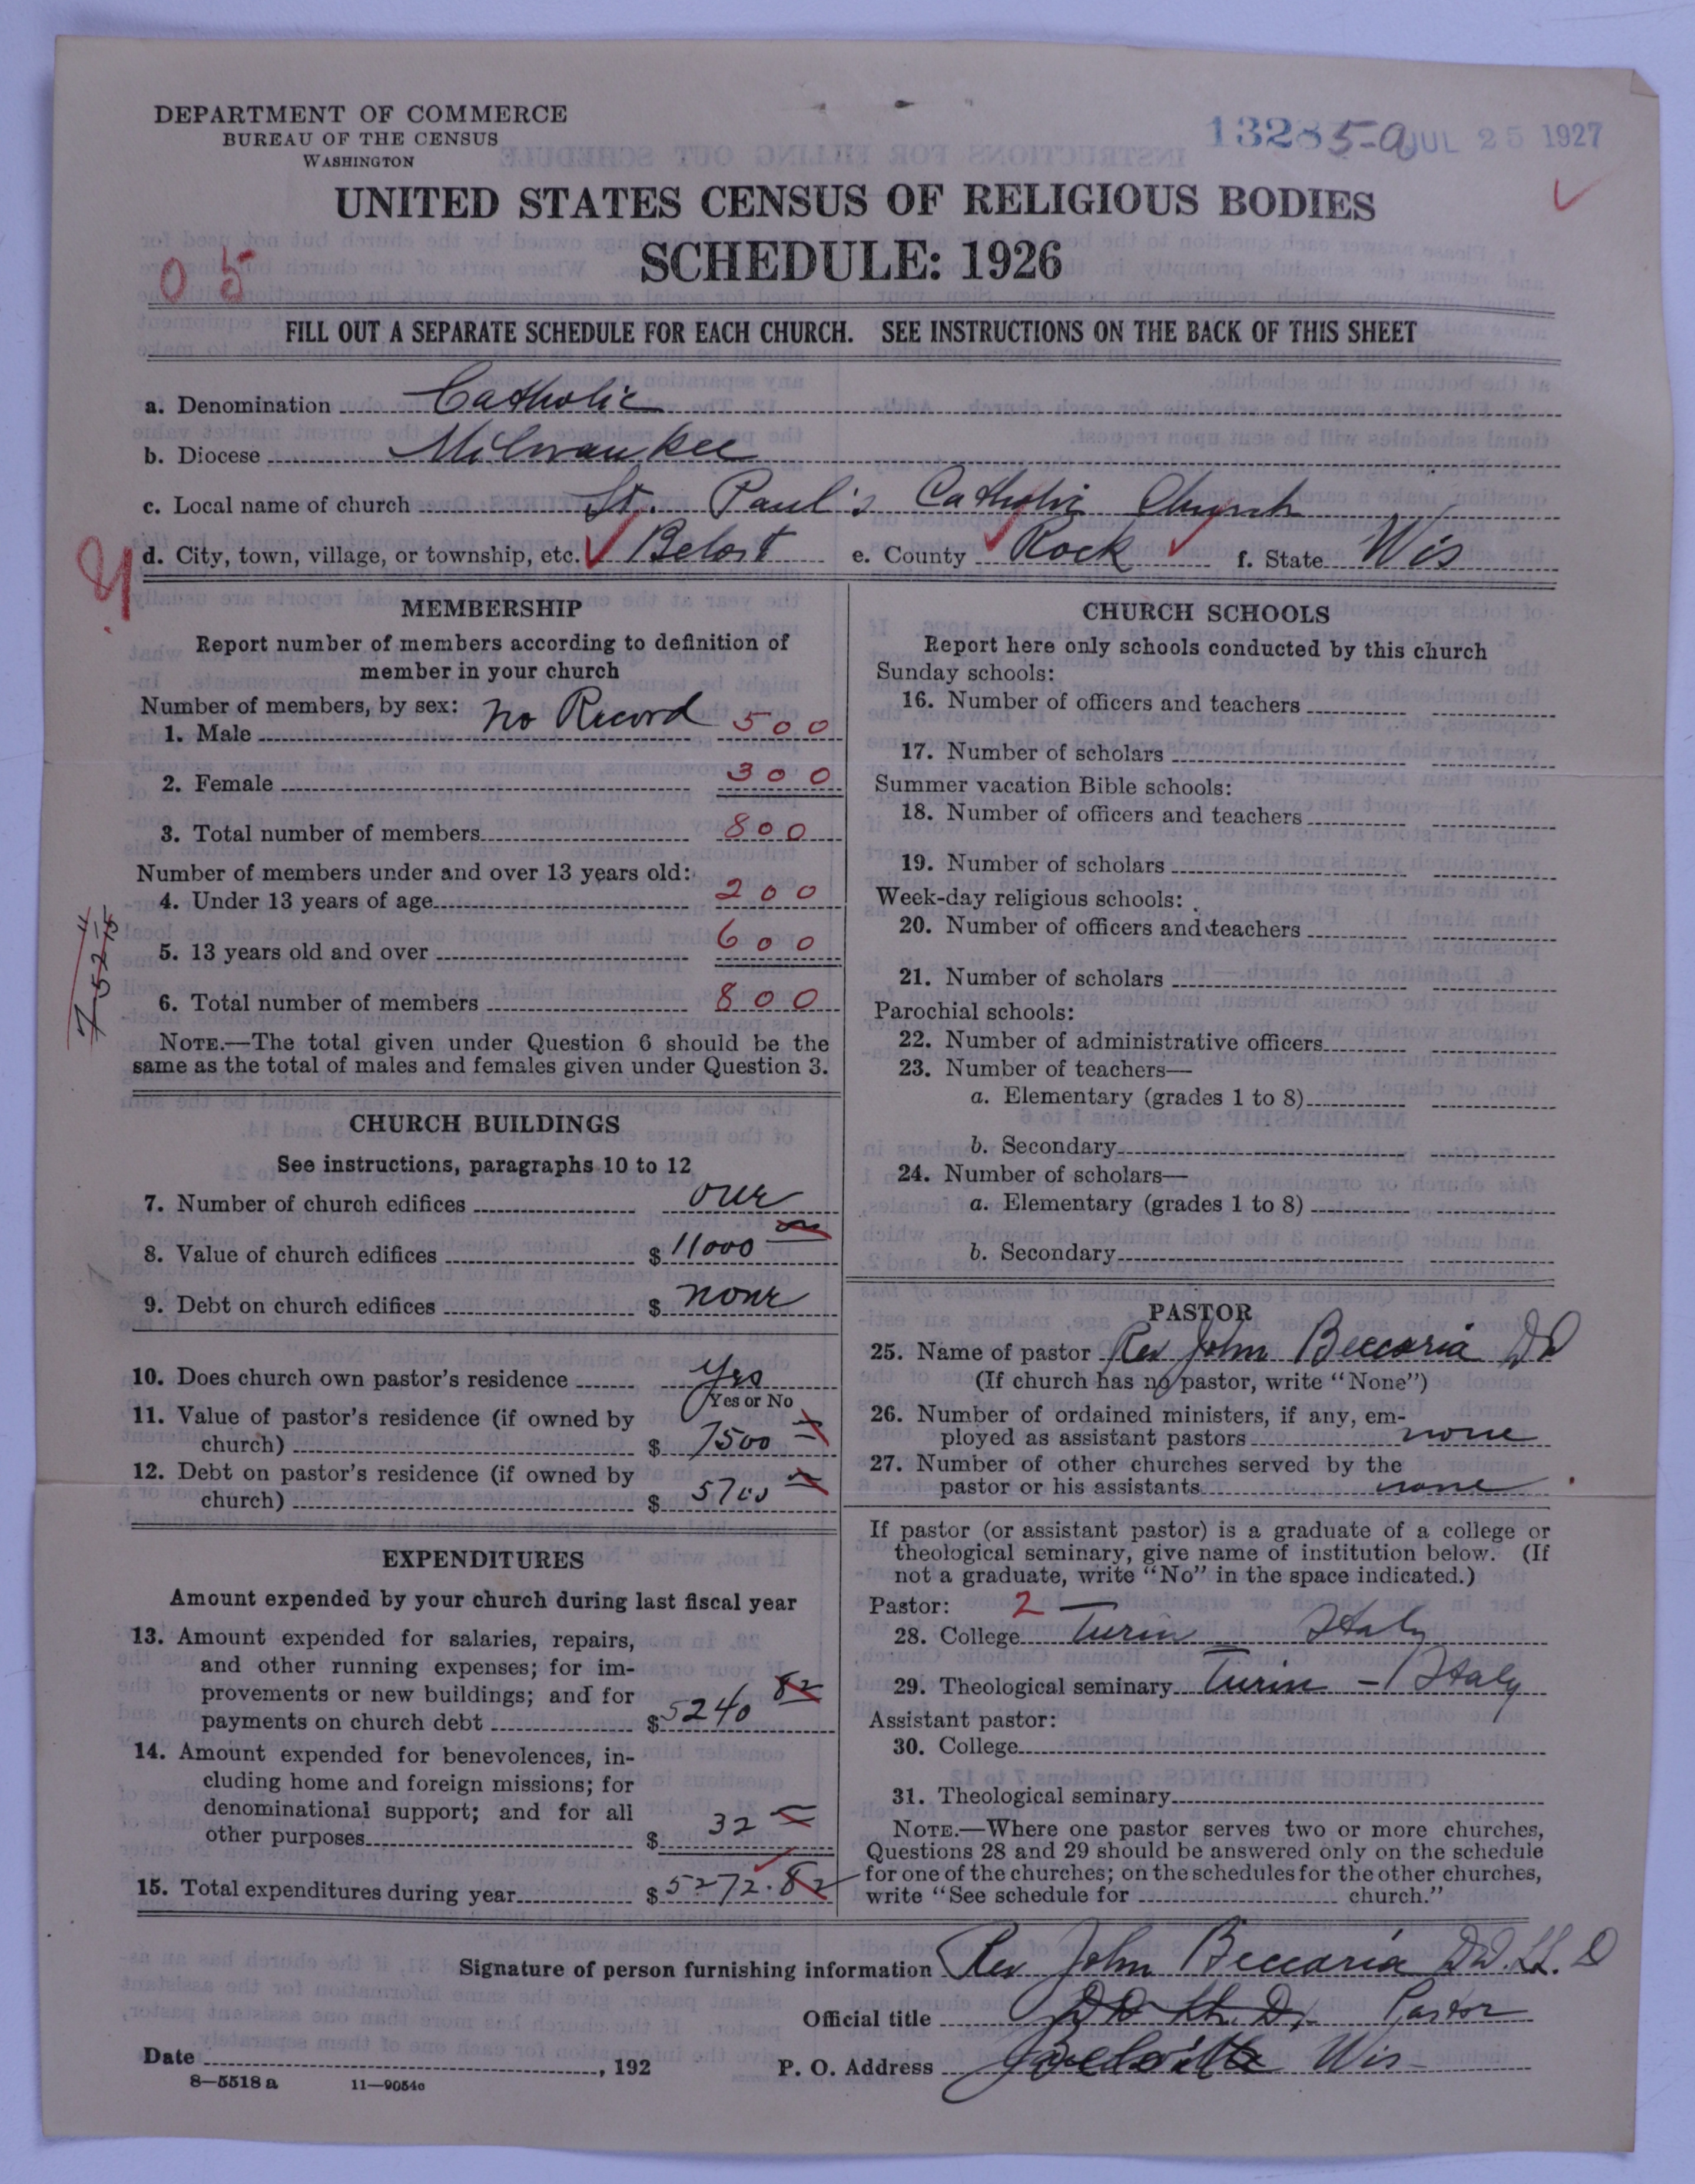 DEPARTMENT OF COMMERCE
BUREAU OF THE CENSUS
WASHINGTON
13285-a JUL 25 1927
UNITED STATES CENSUS OF RELIGIOUS BODIES
SCHEDULE: 1926
05
FILL OUT A SEPARATE SCHEDULE FOR EACH CHURCH. SEE INSTRUCTIONS ON THE BACK OF THIS SHEET
a. Denomination Catholic
b. Diocese Milwaukee
c. Local name of church St. Paul's Catholic Church
d. City, town, village, or township, etc. Beloit e. County Rock f. State Wis
MEMBERSHIP
Report number of members according to definition of
member in your church
Number of members, by sex: no Record
1. Male 500
2. Female 300
3. Total number of members 800
Number of members under and over 13 years old:
4. Under 13 years of age 200
5. 13 years old and over 600
6. Total number of members 800
NOTE.—The total given under Question 6 should be the
same as the total of males and females given under Question 3.
CHURCH BUILDINGS
See instructions, paragraphs 10 to 12
7. Number of church edifices one
8. Value of church edifices $ 11000
9. Debt on church edifices $ none
10. Does church own pastor's residence Yes
Yes or No
11. Value of pastor's residence (if owned by
church) $ 7500
12. Debt on pastor's residence (if owned by
church) $ 5700
EXPENDITURES
Amount expended by your church during last fiscal year
13. Amount expended for salaries, repairs,
and other running expenses; for im-
provements or new buildings; and for
payments on church debt $ 5240 82
14. Amount expended for benevolences, in-
cluding home and foreign missions; for
denominational support; and for all
other purposes $ 32
15. Total expenditures during year $ 5272.82
CHURCH SCHOOLS
Report here only schools conducted by this church
Sunday schools:
16. Number of officers and teachers
17. Number of scholars
Summer vacation Bible schools:
18. Number of officers and teachers
19. Number of scholars
Week-day religious schools:
20. Number of officers and teachers
21. Number of scholars
Parochial schools:
22. Number of administrative officers
23. Number of teachers—
a. Elementary (grades 1 to 8)
b. Secondary
24. Number of scholars—
a. Elementary (grades 1 to 8)
b. Secondary
PASTOR
25. Name of pastor Rev John Beccaria DD
(If church has no pastor, write "None")
26. Number of ordained ministers, if any, em-
ployed as assistant pastors none
27. Number of other churches served by the
pastor or his assistants none
If pastor (or assistant pastor) is a graduate of a college or
theological seminary, give name of institution below. (If
not a graduate, write "No" in the space indicated.)
Pastor: 2
28. College Turin Italy
29. Theological seminary Turin - Italy
Assistant pastor:
30. College
31. Theological seminary
NOTE.—Where one pastor serves two or more churches,
Questions 28 and 29 should be answered only on the schedule
for one of the churches; on the schedules for the other churches,
write "See schedule for church."
Signature of person furnishing information Rev John Beccaria DD. LL. D
Official title Pastor
Date , 192 P. O. Address Wis
8—5518 a 11—9054c